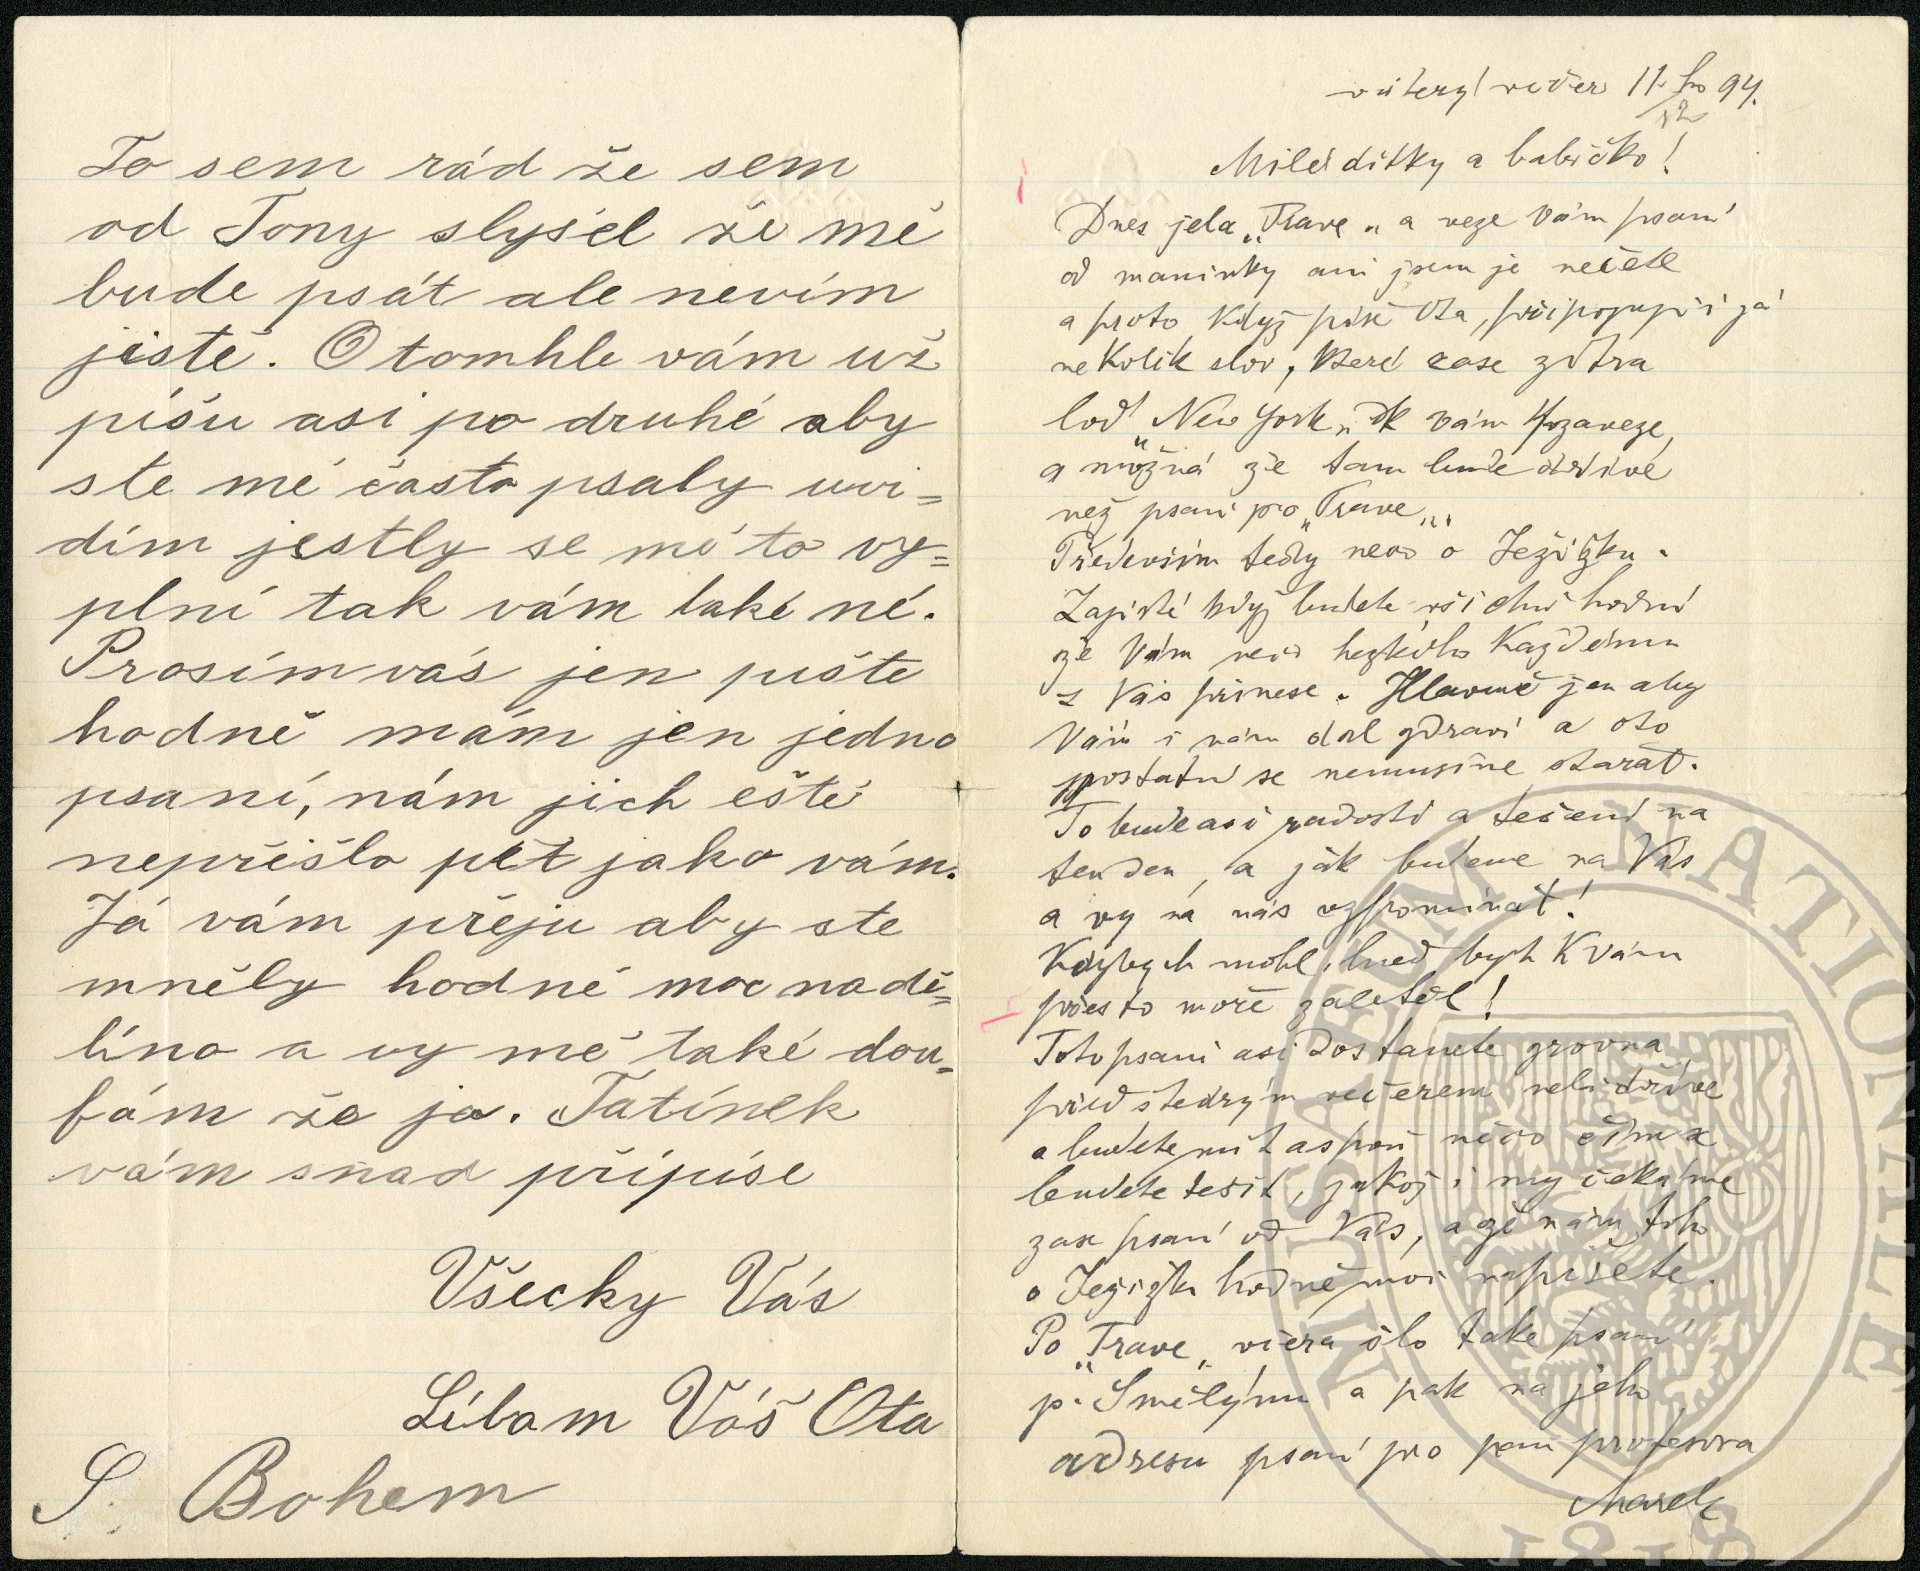 To sem rád že sem
od Tony slyšel že mě
bude psát ale nevím
jistě. O tomhle vám už
píšu asi po druhé aby
ste mě často psaly uvi=
dím jestly se mě to vy=
plní tak vám také né.
Prosím vás jen pište
hodně mám jen jedno
psaní, nám jich eště
nepřišlo pět jako vám.
Já vám přeju aby ste
mněly hodně moc nadě=
líno a vy mě také dou=
fám že jo. Tatínek
vám snad připíse
Všecky Vás
Líbam Váš Ota
S Bohem
v úterý večer 11. ho 94.
12
Milé dítky a babičko!
Dnes jela „Trave„ a veze Vám psaní
od maminky ani jsem je nečetl
a proto když píše Ota, připojuji i já
nekolik slov, které zase zítra
loď „New York„ Vám
a možná že tam bude dříve
než psaní po „Trave„.
Především tedy neco o Ježíšku.
Zajisté když budete všichni hodní
že Vám neco hezkého každému
z Vás přinese. Hlavně jen aby
Vám i nám dal zdraví a oto
postatní se nemusíme starat.
To bude asi radosti a tešení na
ten den, a jak budeme na Vás
a vy na nás vzpomínat!
Kdybych mohl, hned bych k Vám
přes to moře zaletěl!
Toto psaní asi dostanete zrovna
před štedrým večerem nebi dříve
a budete mít aspoň něco čím se
budete tešit, jakož i my čekáme
zase psaní od Vás, a že nám toho
o Ježíšku hodně moc napíšete.
Po „Trave„ včera šlo také psaní
p. Smělýmu a pak na jeho
adresu psaní pro pani profesora
Marek
MUSEUM NATIONALE
1818